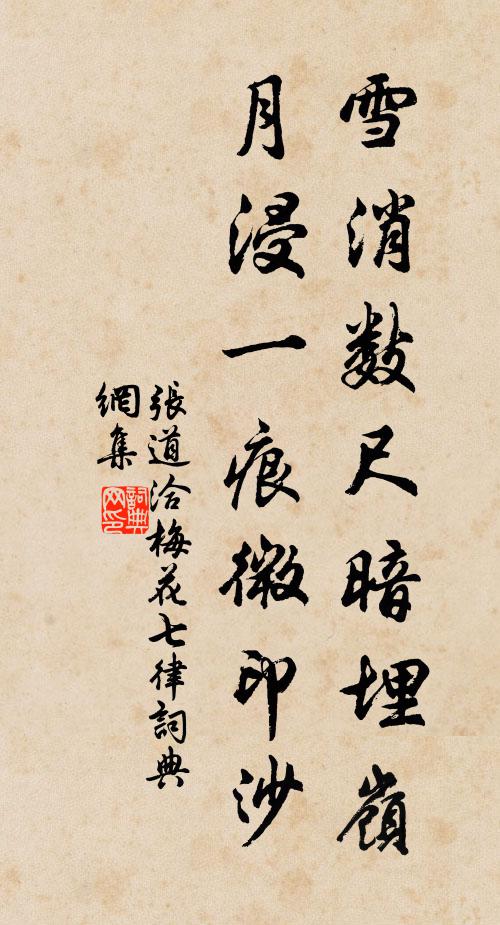 雪消数尺暗埋嶺
月浸一痕微印沙
張道洽梅花七律詞典
網集
詞典
网印